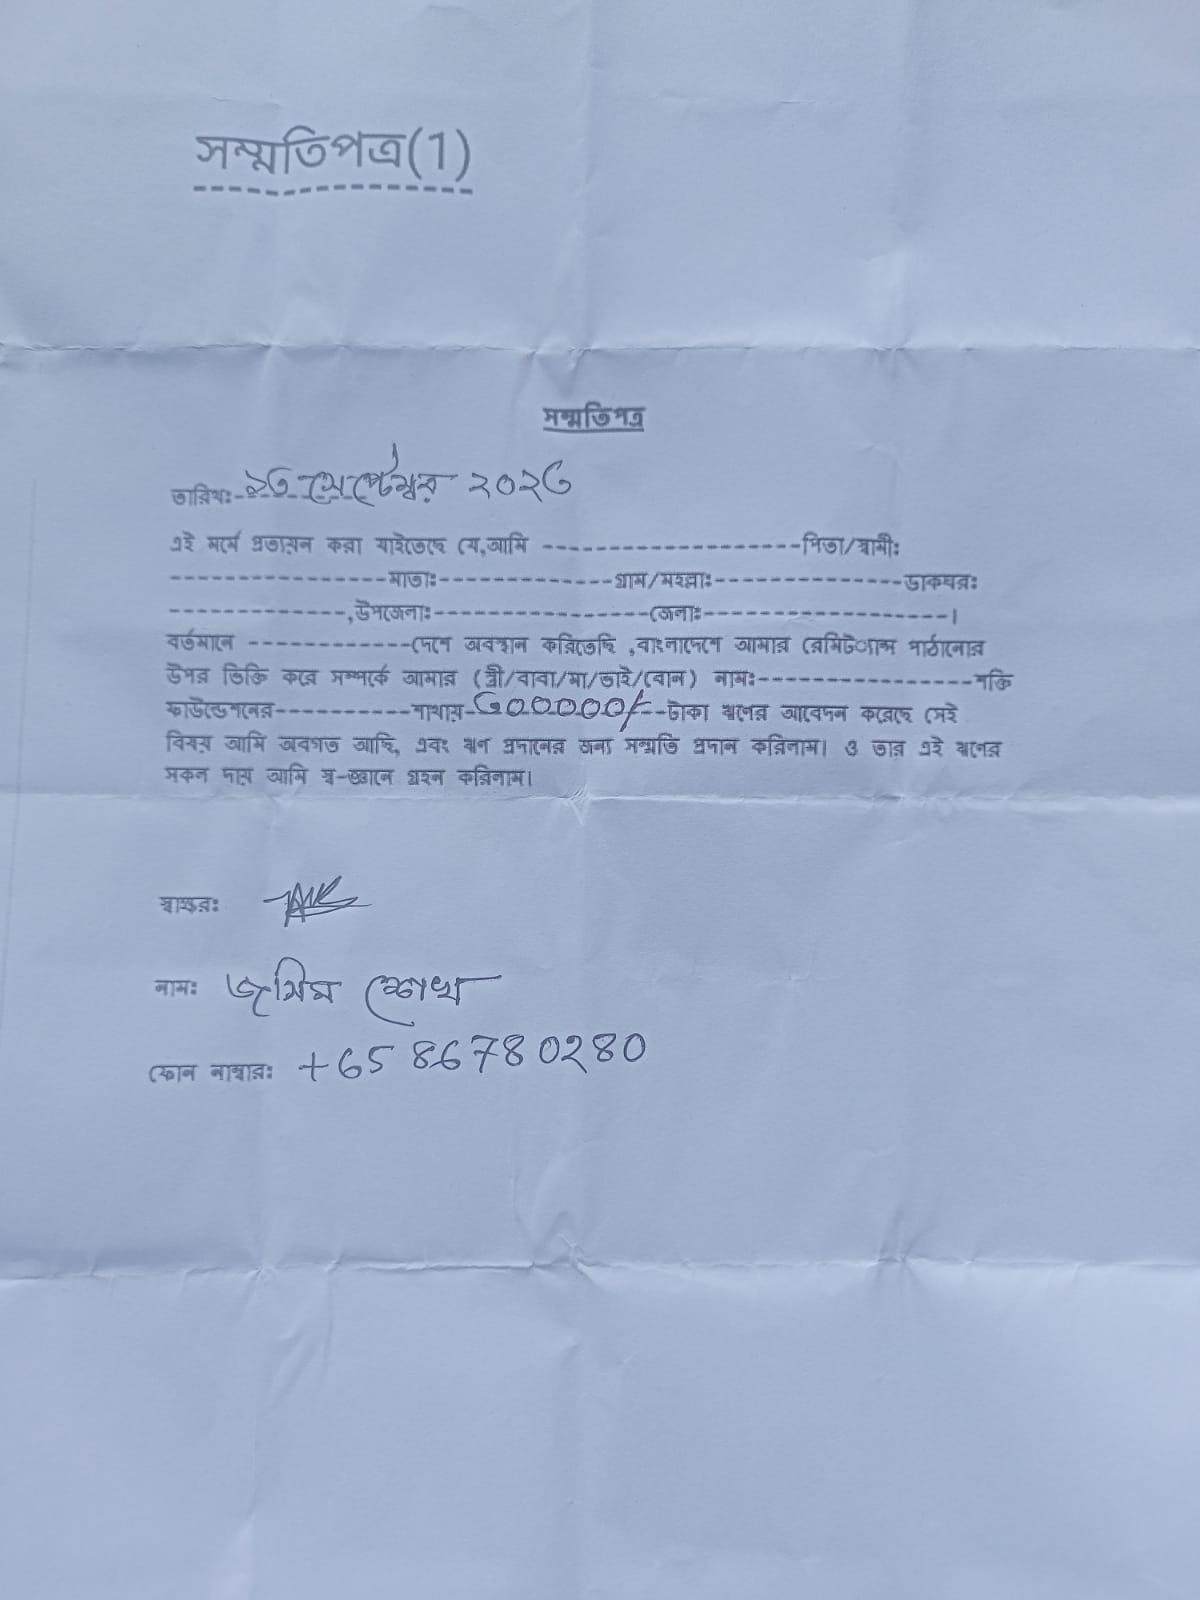 সম্মতিপত্র(1)
সম্মতিপত্র
তারিখঃ- ১৩ সেপ্টেম্বর ২০২৫
এই মর্মে প্রত্যয়ন করা যাইতেছে যে,আমি --------------------পিতা/স্বামীঃ
-----------------মাতাঃ-------------গ্রাম/মহল্লাঃ---------------ডাকঘরঃ
--------------,উপজেলাঃ-----------------জেলাঃ-------------------।
বর্তমানে -------------দেশে অবস্থান করিতেছি ,বাংলাদেশে আমার রেমিট্যান্স পাঠানোর
উপর ভিত্তি করে সম্পর্কে আমার (স্ত্রী/বাবা/মা/ভাই/বোন) নামঃ-----------------শক্তি
ফাউন্ডেশনের-----------শাখায়- ৫০০০০০/- --টাকা ঋনের আবেদন করেছে সেই
বিষয় আমি অবগত আছি, এবং ঋন প্রদানের জন্য সম্মতি প্রদান করিলাম। ও তার এই ঋনের
সকল দায় আমি স্ব-জ্ঞানে গ্রহন করিলাম।
স্বাক্ষরঃ
নামঃ জসিম শেখ
ফোন নাম্বারঃ +65 86780280